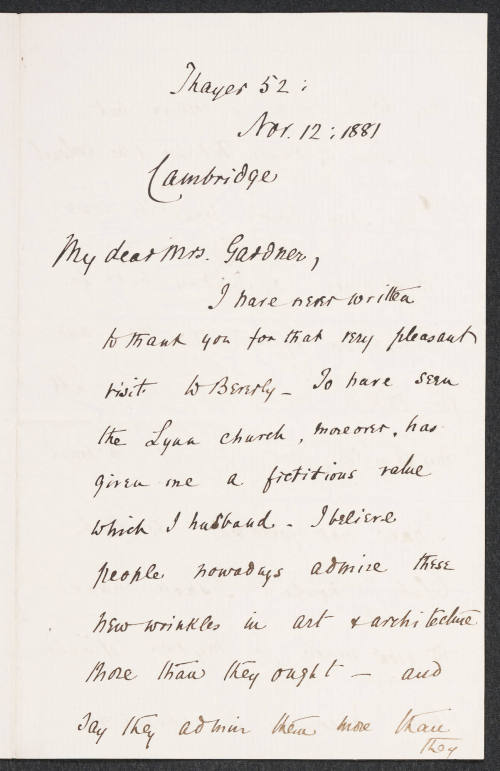 Thayer 52:
Nov. 12: 1881
Cambridge
My dear Mrs. Gardner,
I have never written
to thank you for that very pleasant
visit to Beverly - To have seen
the Lynn church, moreover, has
given me a fictitious value
which I husband - I believe
people nowadays admire these
new wrinkles in art & architecture
more than they ought - and
say they admire them more than
they